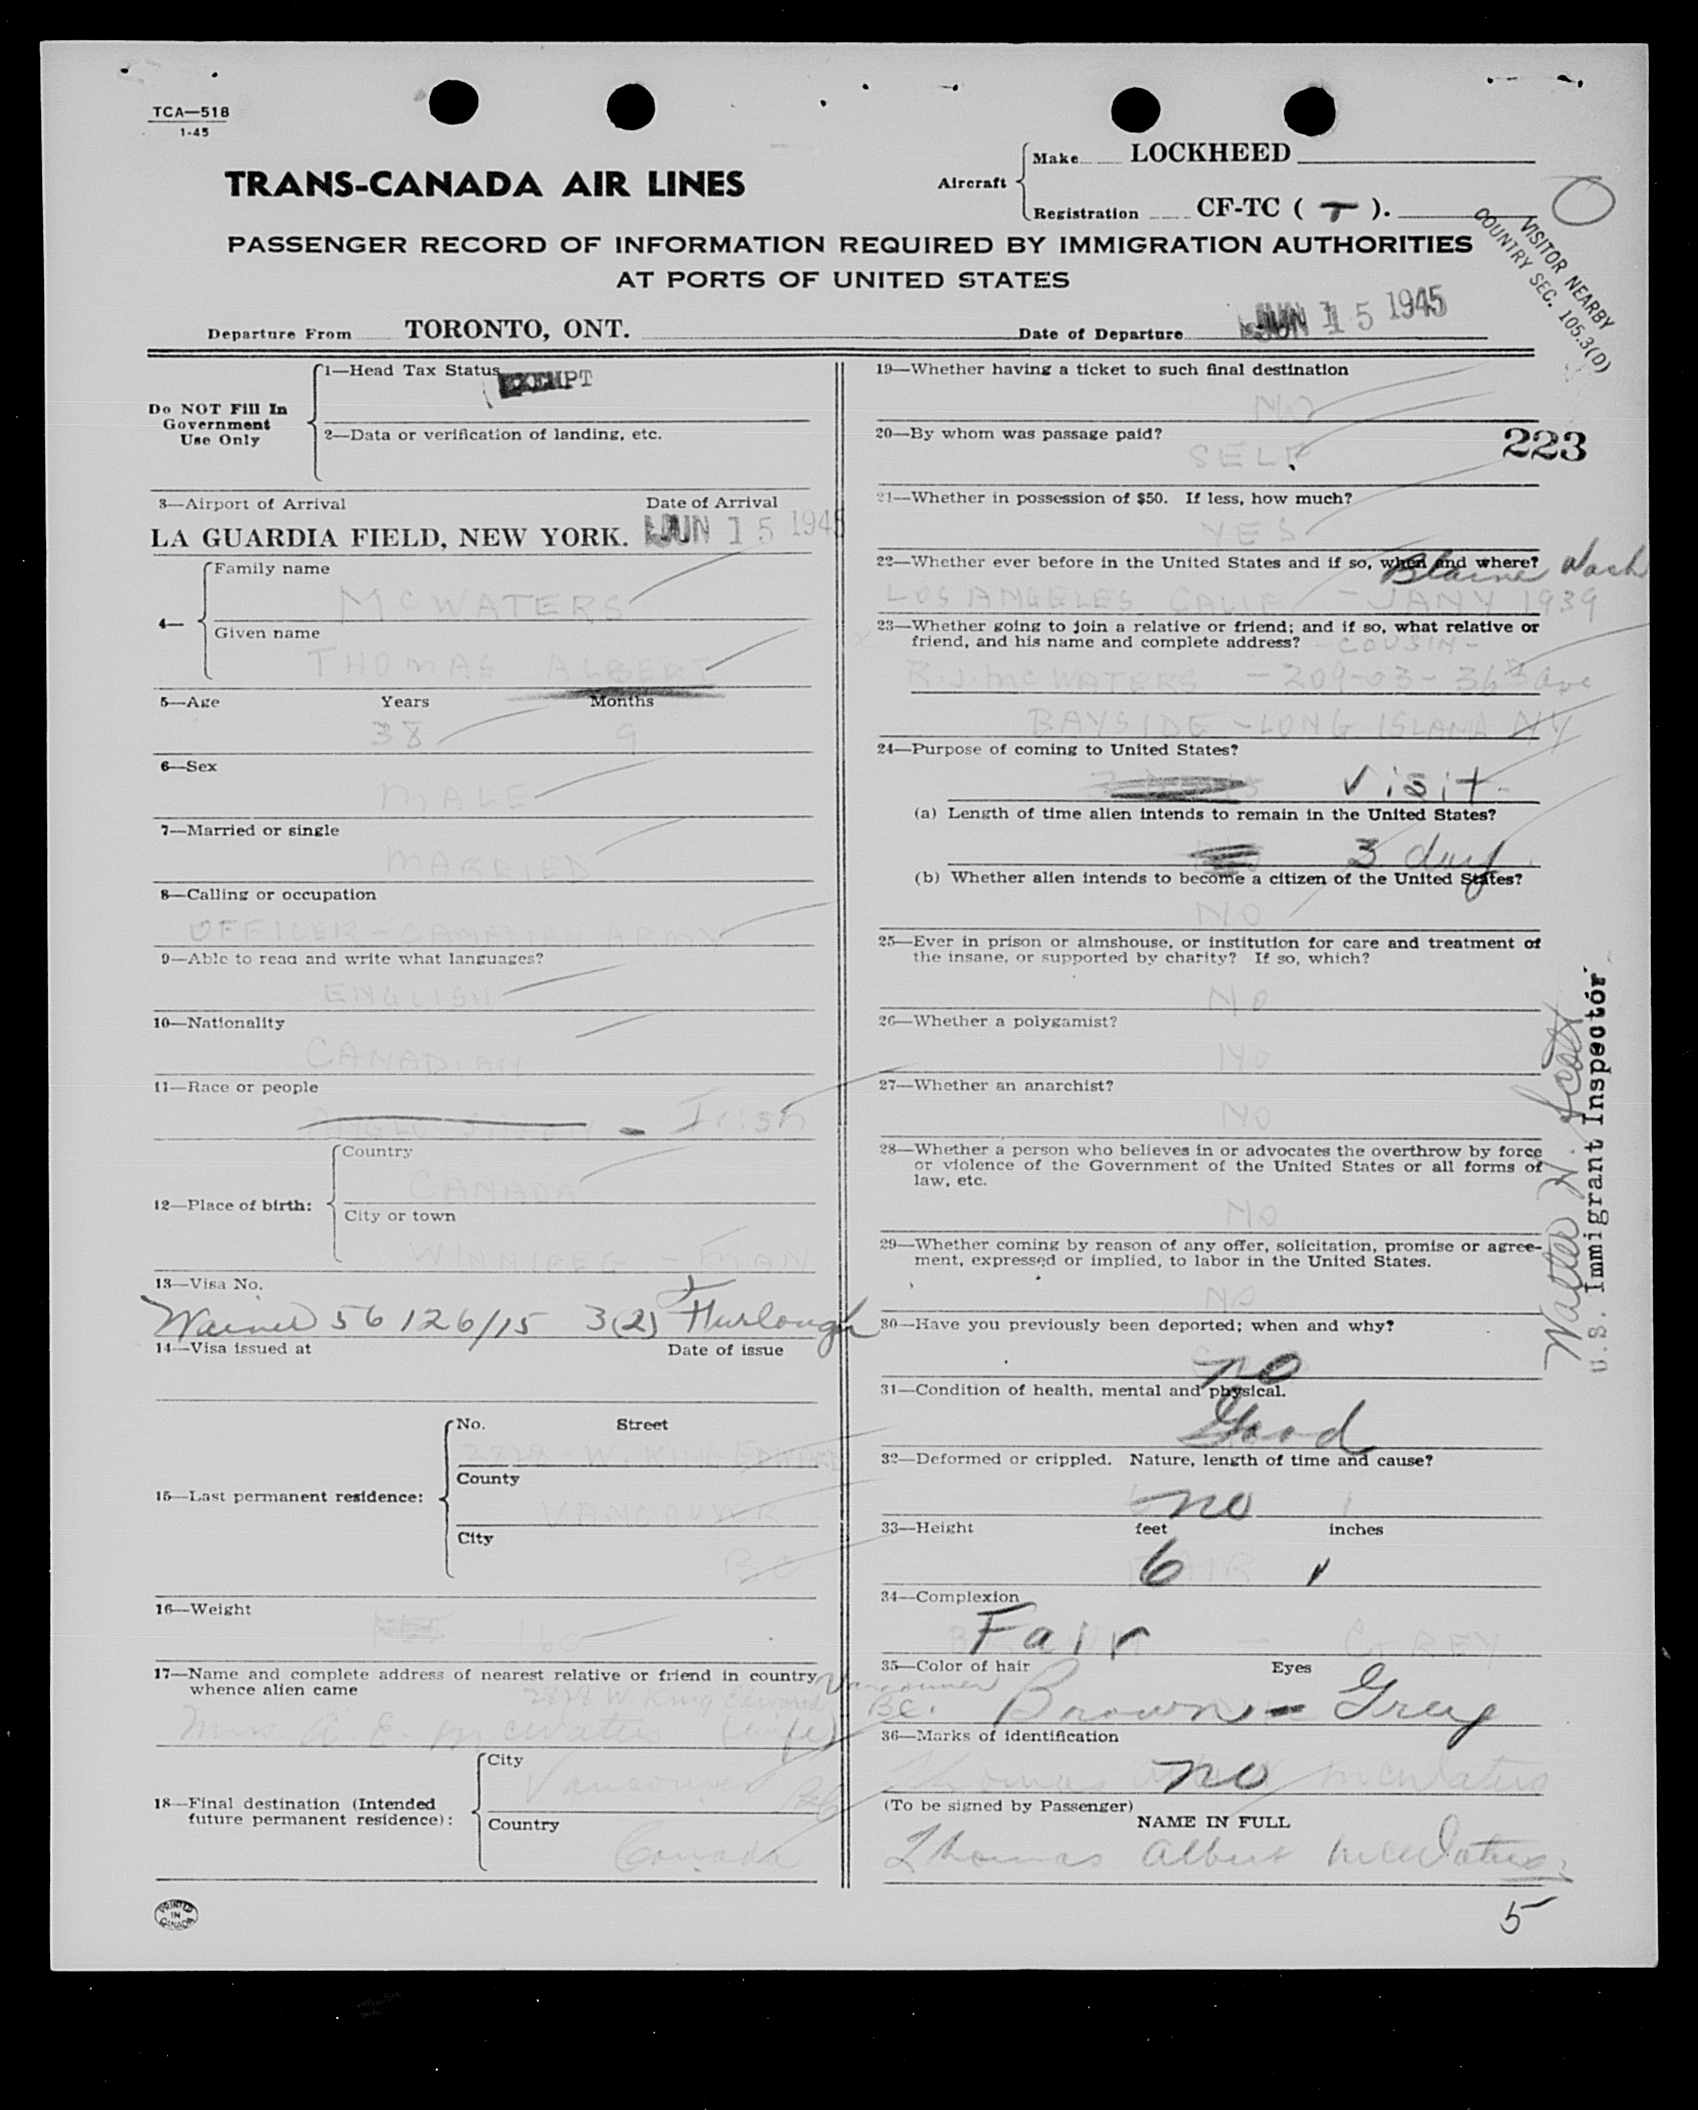 TCA—518
1-45
TRANS-CANADA AIR LINES
Aircraft
Make LOCKHEED
Registration CF-TC ( T ).
PASSENGER RECORD OF INFORMATION REQUIRED BY IMMIGRATION AUTHORITIES
AT PORTS OF UNITED STATES
VISITOR NEARBY
COUNTRY SEC. 105.3(D)
Departure From TORONTO, ONT. Date of Departure JUN 15 1945
Do NOT Fill In
Government
Use Only
1—Head Tax Status EXEMPT
2—Data or verification of landing, etc.
3—Airport of Arrival Date of Arrival
LA GUARDIA FIELD, NEW YORK. JUN 15 1945
4—
Family name
MCWATERS
Given name
THOMAS ALBERT
5—Age Years Months
38 9
6—Sex
MALE
7—Married or single
MARRIED
8—Calling or occupation
OFFICER - CANADIAN ARMY
9—Able to read and write what languages?
ENGLISH
10—Nationality
CANADIAN
11—Race or people
ANGLO SAXON - Irish
12—Place of birth:
Country
CANADA
City or town
WINNIPEG - MAN
13—Visa No.
56126/15 3(2) Furlough
14—Visa issued at Date of issue
15—Last permanent residence:
No. Street
2828 W. KING EDWARD
County
VANCOUVER
City
BC
16—Weight
160
17—Name and complete address of nearest relative or friend in country
whence alien came
2828 W. King Edward Vancouver
BC.
Mrs A. E. McWaters (wife)
18—Final destination (Intended
future permanent residence):
City
Vancouver BC
Country
Canada
PRINTED
IN
CANADA
19—Whether having a ticket to such final destination
NO
20—By whom was passage paid?
SELF
223
21—Whether in possession of $50. If less, how much?
YES
22—Whether ever before in the United States and if so, when and where?
Blaine Wash
LOS ANGELES CALIF - JANY 1939
23—Whether going to join a relative or friend; and if so, what relative or
friend, and his name and complete address? - COUSIN -
R.J. MCWATERS - 209-03- 36th Ave
BAYSIDE - LONG ISLAND NY
24—Purpose of coming to United States?
Visit
(a) Length of time alien intends to remain in the United States?
3 days
(b) Whether alien intends to become a citizen of the United States?
NO
25—Ever in prison or almshouse, or institution for care and treatment of
the insane, or supported by charity? If so, which?
NO
26—Whether a polygamist?
NO
27—Whether an anarchist?
NO
28—Whether a person who believes in or advocates the overthrow by force
or violence of the Government of the United States or all forms of
law, etc.
NO
29—Whether coming by reason of any offer, solicitation, promise or agree-
ment, expressed or implied, to labor in the United States.
NO
30—Have you previously been deported; when and why?
no
31—Condition of health, mental and physical.
Good
32—Deformed or crippled. Nature, length of time and cause?
no
33—Height feet inches
6 1
34—Complexion
Fair
35—Color of hair Eyes
Brown - Grey
36—Marks of identification
no
(To be signed by Passenger)
NAME IN FULL
Thomas Albert McWaters
5
Walter N. Scott
U.S. Immigrant Inspector